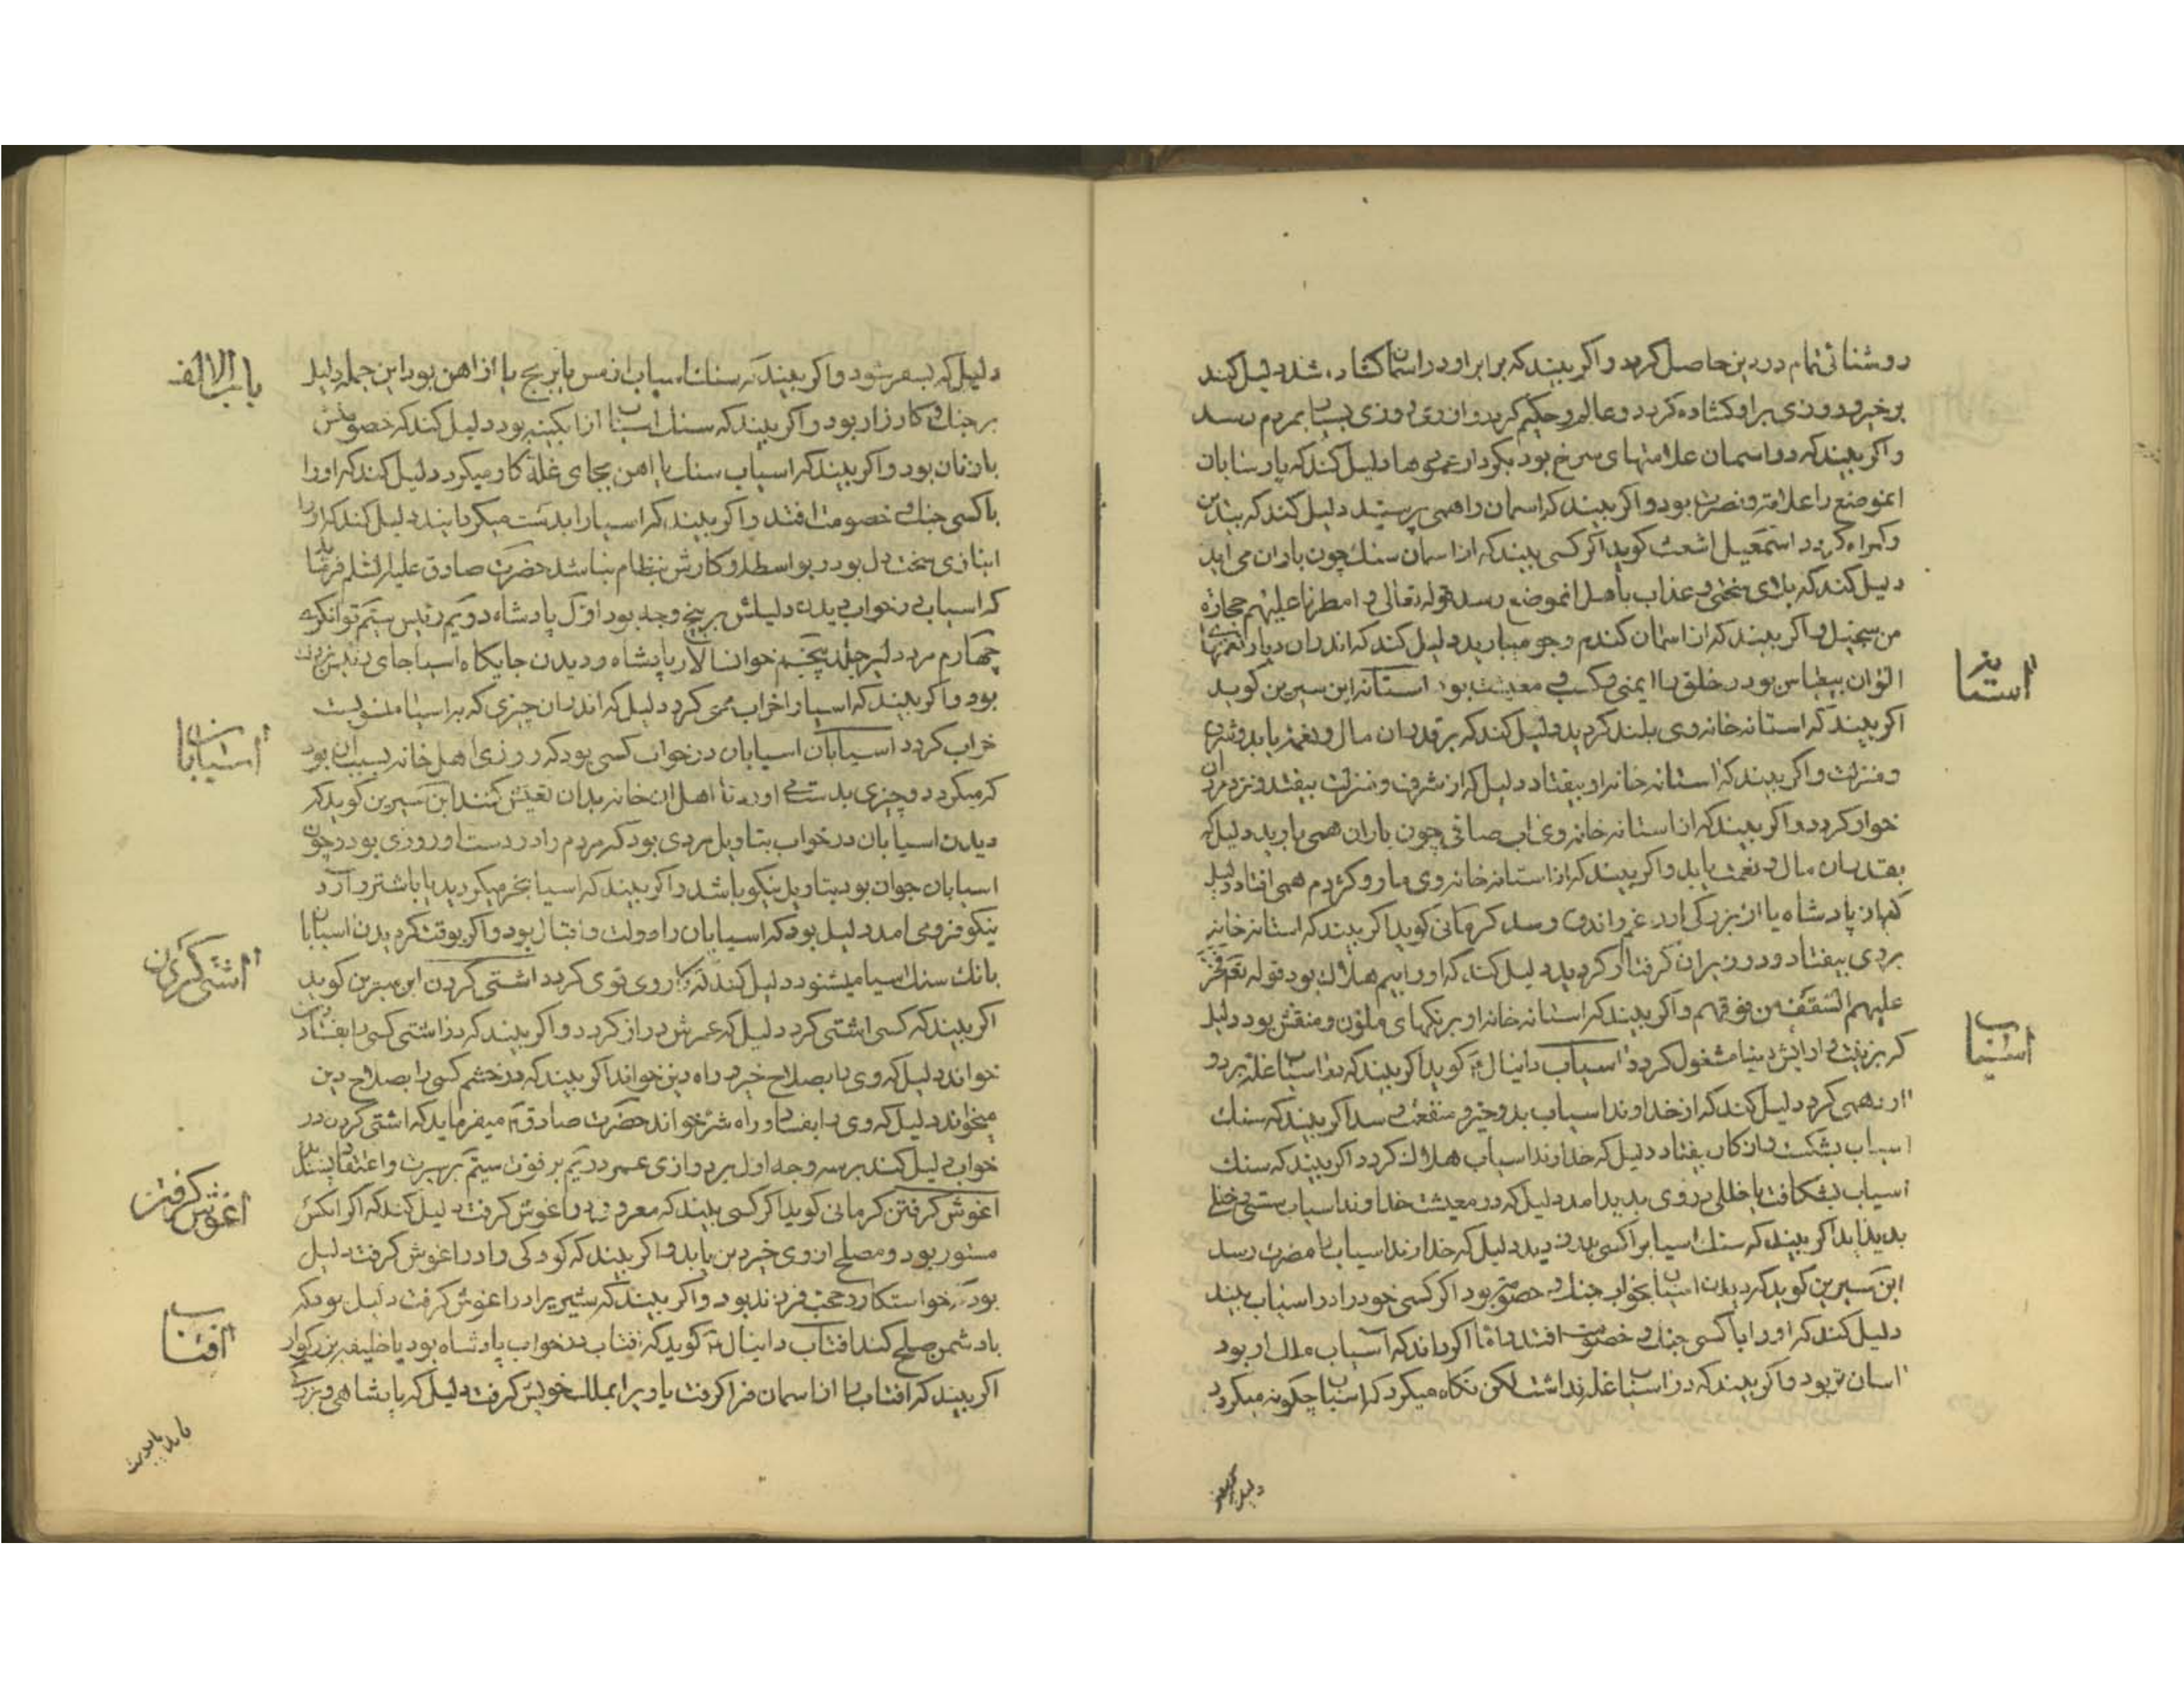 روشنائی تمام در دین حاصل کردد و اکر بیند که برابر او در اسمان کشاده شد دلیل کند
بر خیر و روزی بر او کشاده کردد و عالم و حکیم کردد و از وی روزی بسیار بمردم رسد
واکر بیند که در اسمان علامتهای سرخ بود بکردار عمودها دلیل کند که پادشاهان
انموضع را علامت و نصرت بود واکر بیند که اسمان را همی پرستید دلیل کند که بیدین
وکمراه کردد اسمعیل اشعث کوید اکر کسی بیند که از اسمان سنک چون باران می اید
دلیل کند که بلای سختی و عذاب باهل انموضع رسد قوله تعالی و امطرنا علیهم حجارة
من سجیل واکر بیند که از اسمان کندم وجو میبارید دلیل کند که اندران دیار نعمتهای
الوان بود و خلق را ایمنی و کسب و معیشت بود استانه ابن سیرین کوید
استانه
اکر بیند که استانه خانه وی بلند کردید دلیل کند که بر قدر ان مال و نعمت یابد و شرف
ومنزلت واکر بیند که استانه خانه او بیفتاد دلیل که از شرف و منزلت بیفتد و نزد مردمان
خوار کردد واکر بیند که از استانه خانه وی اب صافی چون باران همی بارید دلیل که
بقدر ان مال و نعمت یابد واکر بیند که از استانه خانه وی مار و کژدم همی افتاد دلیل
که از پادشاه یا از بزرکی او را غم و اندوه رسد کرمانی کوید اکر بیند که استانه خانه
بروی بیفتاد و در زیر ان کرفتار کردید دلیل کند که او را بیم هلاک بود قوله تعالی فخر
علیهم السقف من فوقهم واکر بیند که استانه خانه او برنکهای ملون و منقش بود دلیل
که بزینت و ارایش دنیا مشغول کردد اسیاب دانیال ع کوید اکر بیند که در اسیاب غله برد و
اسیاب
ارد همی کرد دلیل کند که از خداوند اسیاب بدو خیر و منفعت رسد اکر بیند که سنک
اسیاب بشکست و از کار بیفتاد دلیل که خداوند اسیاب هلاک کردد اکر بیند که سنک
اسیاب بشکافت یا خللی در وی پدید امد دلیل که در معیشت خداوند اسیاب سستی و خللی
پدید اید اکر بیند که سنک اسیا برا کسی بدزدید دلیل که خداوند اسیاب را مضرت رسد
ابن سیرین کوید که دیدن اسیاب بخواب جنک و خصومت بود اکر کسی خود را در اسیاب بیند
دلیل کند که او را با کسی جنک و خصومت افتد و اما اکر داند که اسیاب ملک او بود
اسان تر بود واکر بیند که در اسیاب غله نداشت لکن نکاه میکرد که اسیاب چکونه میکردد
دلیل که بسفر
باب الالف
دلیل که بسفر شود واکر بیند که سنک اسیاب از مس یا برنج یا از اهن بود این جمله دلیل
بر جنک و کارزار بود واکر بیند که سنک اسیاب از ابکینه بود دلیل کند که خصومتش
با زنان بود واکر بیند که اسیاب سنک یا اهن بجای غله کار میکرد دلیل کند که او را
با کسی جنک و خصومت افتد واکر بیند که اسیا را بدست میکردانید دلیل کند که او را
انبازی سخت دل بود و بواسطه او کارش بنظام نباشد حضرت صادق علیه السلم فرماید
که اسیاب در خواب دیدن دلیلش بر پنج وجه بود اول پادشاه دویم رئیس سیم توانکری
چهارم مرد دلیر جلد پنجم خوانسالار پادشاه و دیدن جایکاه اسیا جای
بود واکر بیند که اسیا را خراب می کرد دلیل که اندران چیزی که بر اسیا منسوبست
خراب کردد اسیابان اسیابان در خواب کسی بود که روزی اهل خانه بسبب ان بود
اسیابان
که میکردد و چیزی بدست می اورد تا اهل ان خانه بدان تعیش کنند ابن سیرین کوید که
دیدن اسیابان در خواب بتاویل مردی بود که مردم را در دست او روزی بود و چون
اسیابان جوان بود بتاویل نیکو باشد واکر بیند که اسیا بخر میکردید یا باشتر و ارد
نیکو فرو می امد دلیل بود که اسیابان را دولت و اقبال بود واکر بوقت کردیدن اسیابان
بانک سنک اسیا میشنود دلیل کند که کار وی قوی کردد اشتی کردن ابن سیرین کوید
اشتی کردن
اکر بیند که کسی اشتی کرد دلیل که عمرش دراز کردد واکر بیند که در اشتی کسی را بفساد
خواند دلیل که وی را بصلاح خرد راه دین خواند اکر بیند که در خشم کسی را بصلاح دین
میخواند دلیل که وی را بفساد و راه شر خواند حضرت صادق ع میفرماید که اشتی کردن در
خواب دلیل کند بر سه وجه اول بر درازی عمر دویم بر فوت سیم بر
اغوش کرفتن کرمانی کوید اکر کسی بیند که معروفی را در اغوش کرفت دلیل کند که اکر انکس
اغوش کرفتن
مستور بود و مصلح از وی خیر دین یابد واکر بیند که کودکی را در اغوش کرفت دلیل
بود که خواستکار و محب فرزند بود واکر بیند که شیر را در اغوش کرفت دلیل بود که
با دشمن صلح کند افتاب دانیال ع کوید که افتاب در خواب پادشاه بود یا خلیفه بزرکوار
افتاب
اکر بیند که افتاب را از اسمان فرا کرفت یا ویرا بملک خویش کرفت دلیل که پادشاهی و بزرکی
یابد یا دوست